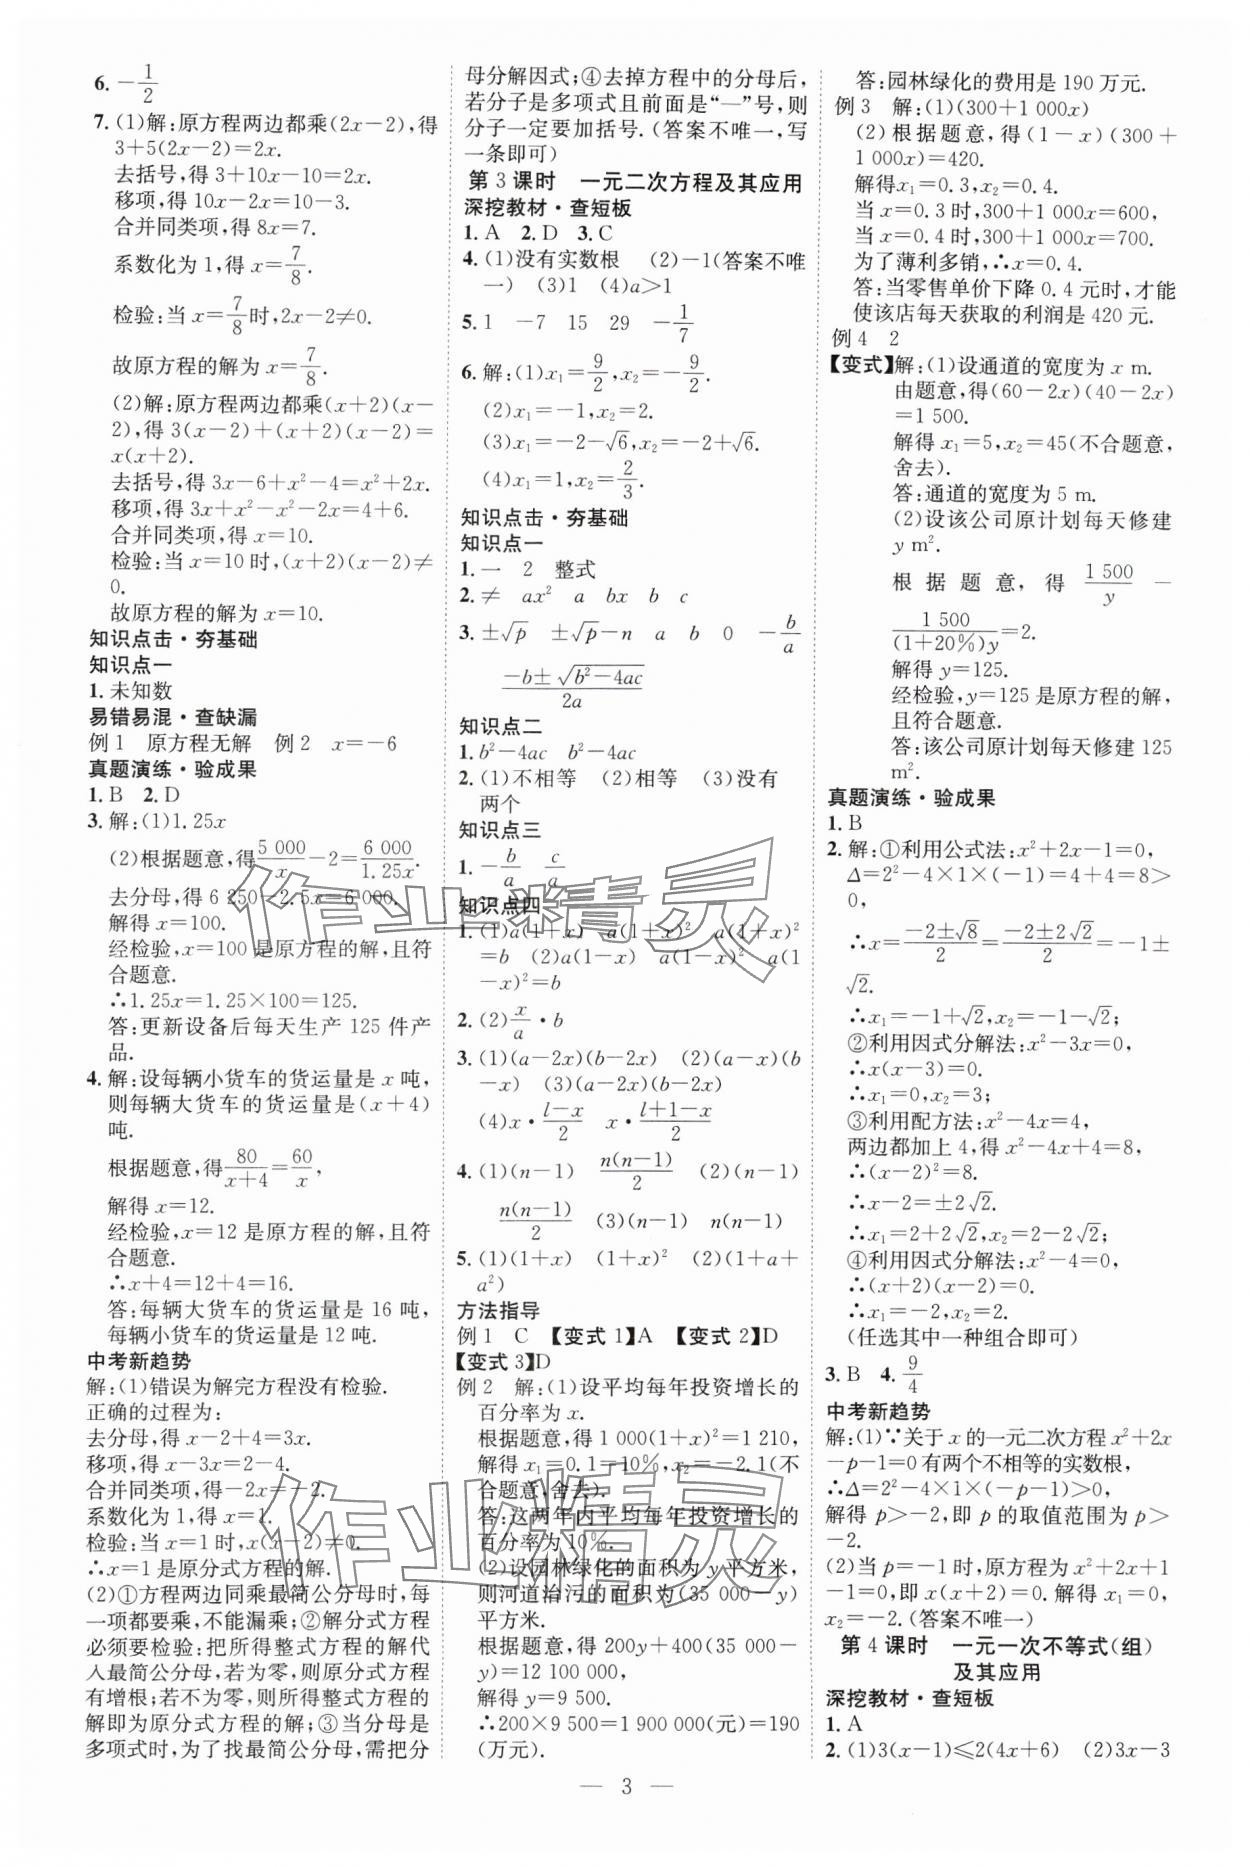 6. −1/2
7. (1)解:原方程两边都乘(2x−2),得
3+5(2x−2)=2x.
去括号,得 3+10x−10=2x.
移项,得 10x−2x=10−3.
合并同类项,得 8x=7.
系数化为 1,得 x=7/8.
检验:当 x=7/8时,2x−2≠0.
故原方程的解为 x=7/8.
(2)解:原方程两边都乘(x+2)(x−
2),得 3(x−2)+(x+2)(x−2)=
x(x+2).
去括号,得 3x−6+x²−4=x²+2x.
移项,得 3x+x²−x²−2x=4+6.
合并同类项,得 x=10.
检验:当 x=10 时,(x+2)(x−2)≠
0.
故原方程的解为 x=10.
知识点击·夯基础
知识点一
1. 未知数
易错易混·查缺漏
例1 原方程无解 例2 x=−6
真题演练·验成果
1. B 2. D
3. 解:(1)1.25x
(2)根据题意,得5 000/x−2=6 000/1.25x.
去分母,得 6 250−2.5x=6 000.
解得 x=100.
经检验,x=100 是原方程的解,且符
合题意.
∴1.25x=1.25×100=125.
答:更新设备后每天生产 125 件产
品.
4. 解:设每辆小货车的货运量是 x 吨,
则每辆大货车的货运量是(x+4)
吨.
根据题意,得80/(x+4)=60/x,
解得 x=12.
经检验,x=12 是原方程的解,且符
合题意.
∴x+4=12+4=16.
答:每辆大货车的货运量是 16 吨,
每辆小货车的货运量是 12 吨.
中考新趋势
解:(1)错误为解完方程没有检验.
正确的过程为:
去分母,得 x−2+4=3x.
移项,得 x−3x=2−4.
合并同类项,得−2x=−2.
系数化为 1,得 x=1.
检验:当 x=1 时,x(x−2)≠0.
∴x=1 是原分式方程的解.
(2)①方程两边同乘最简公分母时,每
一项都要乘,不能漏乘;②解分式方程
必须要检验:把所得整式方程的解代
入最简公分母,若为零,则原分式方程
有增根;若不为零,则所得整式方程的
解即为原分式方程的解;③当分母是
多项式时,为了找最简公分母,需把分
母分解因式;④去掉方程中的分母后,
若分子是多项式且前面是“—”号,则
分子一定要加括号.(答案不唯一,写
一条即可)
第 3 课时 一元二次方程及其应用
深挖教材·查短板
1. A 2. D 3. C
4. (1)没有实数根 (2)−1(答案不唯
一) (3)1 (4)a>1
5. 1 −7 15 29 −1/7
6. 解:(1)x₁=9/2,x₂=−9/2.
(2)x₁=−1,x₂=2.
(3)x₁=−2−√6,x₂=−2+√6.
(4)x₁=1,x₂=2/3.
知识点击·夯基础
知识点一
1. 一 2 整式
2. ≠ ax² a bx b c
3. ±√p ±√p−n a b 0 −b/a
(−b±√(b²−4ac))/2a
知识点二
1. b²−4ac b²−4ac
2. (1)不相等 (2)相等 (3)没有
两个
知识点三
1. −b/a c/a
知识点四
1. (1)a(1+x) a(1+x)² a(1+x)²
=b (2)a(1−x) a(1−x)² a(1
−x)²=b
2. (2)x/a·b
3. (1)(a−2x)(b−2x) (2)(a−x)(b
−x) (3)(a−2x)(b−2x)
(4)x·(l−x)/2 x·(l+1−x)/2
4. (1)(n−1) n(n−1)/2 (2)(n−1)
n(n−1)/2 (3)(n−1) n(n−1)
5. (1)(1+x) (1+x)² (2)(1+a+
a²)
方法指导
例1 C 【变式 1】A 【变式 2】D
【变式 3】D
例2 解:(1)设平均每年投资增长的
百分率为 x.
根据题意,得 1 000(1+x)²=1 210,
解得 x₁=0.1=10%,x₂=−2.1(不
合题意,舍去).
答:这两年内平均每年投资增长的
百分率为 10%.
(2)设园林绿化的面积为 y 平方米,
则河道治污的面积为(35 000−y)
平方米.
根据题意,得 200y+400(35 000−
y)=12 100 000,
解得 y=9 500.
∴200×9 500=1 900 000(元)=190
(万元).
答:园林绿化的费用是 190 万元.
例3 解:(1)(300+1 000x)
(2)根据题意,得(1−x)(300+
1 000x)=420.
解得x₁=0.3,x₂=0.4.
当 x=0.3 时,300+1 000x=600,
当 x=0.4 时,300+1 000x=700.
为了薄利多销,∴x=0.4.
答:当零售单价下降 0.4 元时,才能
使该店每天获取的利润是 420 元.
例4 2
【变式】解:(1)设通道的宽度为 x m.
由题意,得(60−2x)(40−2x)
=1 500.
解得 x₁=5,x₂=45(不合题意,
舍去).
答:通道的宽度为 5 m.
(2)设该公司原计划每天修建
y m².
根据题意,得 1 500/y −
1 500/(1+20%)y=2.
解得 y=125.
经检验,y=125 是原方程的解,
且符合题意.
答:该公司原计划每天修建 125
m².
真题演练·验成果
1. B
2. 解:①利用公式法:x²+2x−1=0,
Δ=2²−4×1×(−1)=4+4=8>
0,
∴x=(−2±√8)/2=(−2±2√2)/2=−1±
√2.
∴x₁=−1+√2,x₂=−1−√2;
②利用因式分解法:x²−3x=0,
∴x(x−3)=0.
∴x₁=0,x₂=3;
③利用配方法:x²−4x=4,
两边都加上 4,得 x²−4x+4=8,
∴(x−2)²=8.
∴x−2=±2√2.
∴x₁=2+2√2,x₂=2−2√2;
④利用因式分解法:x²−4=0,
∴(x+2)(x−2)=0.
∴x₁=−2,x₂=2.
(任选其中一种组合即可)
3. B 4. 9/4
中考新趋势
解:(1)∵关于 x 的一元二次方程 x²+2x
−p−1=0有两个不相等的实数根,
∴Δ=2²−4×1×(−p−1)>0,
解得 p>−2,即 p 的取值范围为 p>
−2.
(2)当 p=−1 时,原方程为 x²+2x+1
−1=0,即 x(x+2)=0.解得 x₁=0,
x₂=−2.(答案不唯一)
第 4 课时 一元一次不等式(组)
及其应用
深挖教材·查短板
1. A
2. (1)3(x−1)≤2(4x+6) (2)3x−3
— 3 —
作业精灵
作业精灵